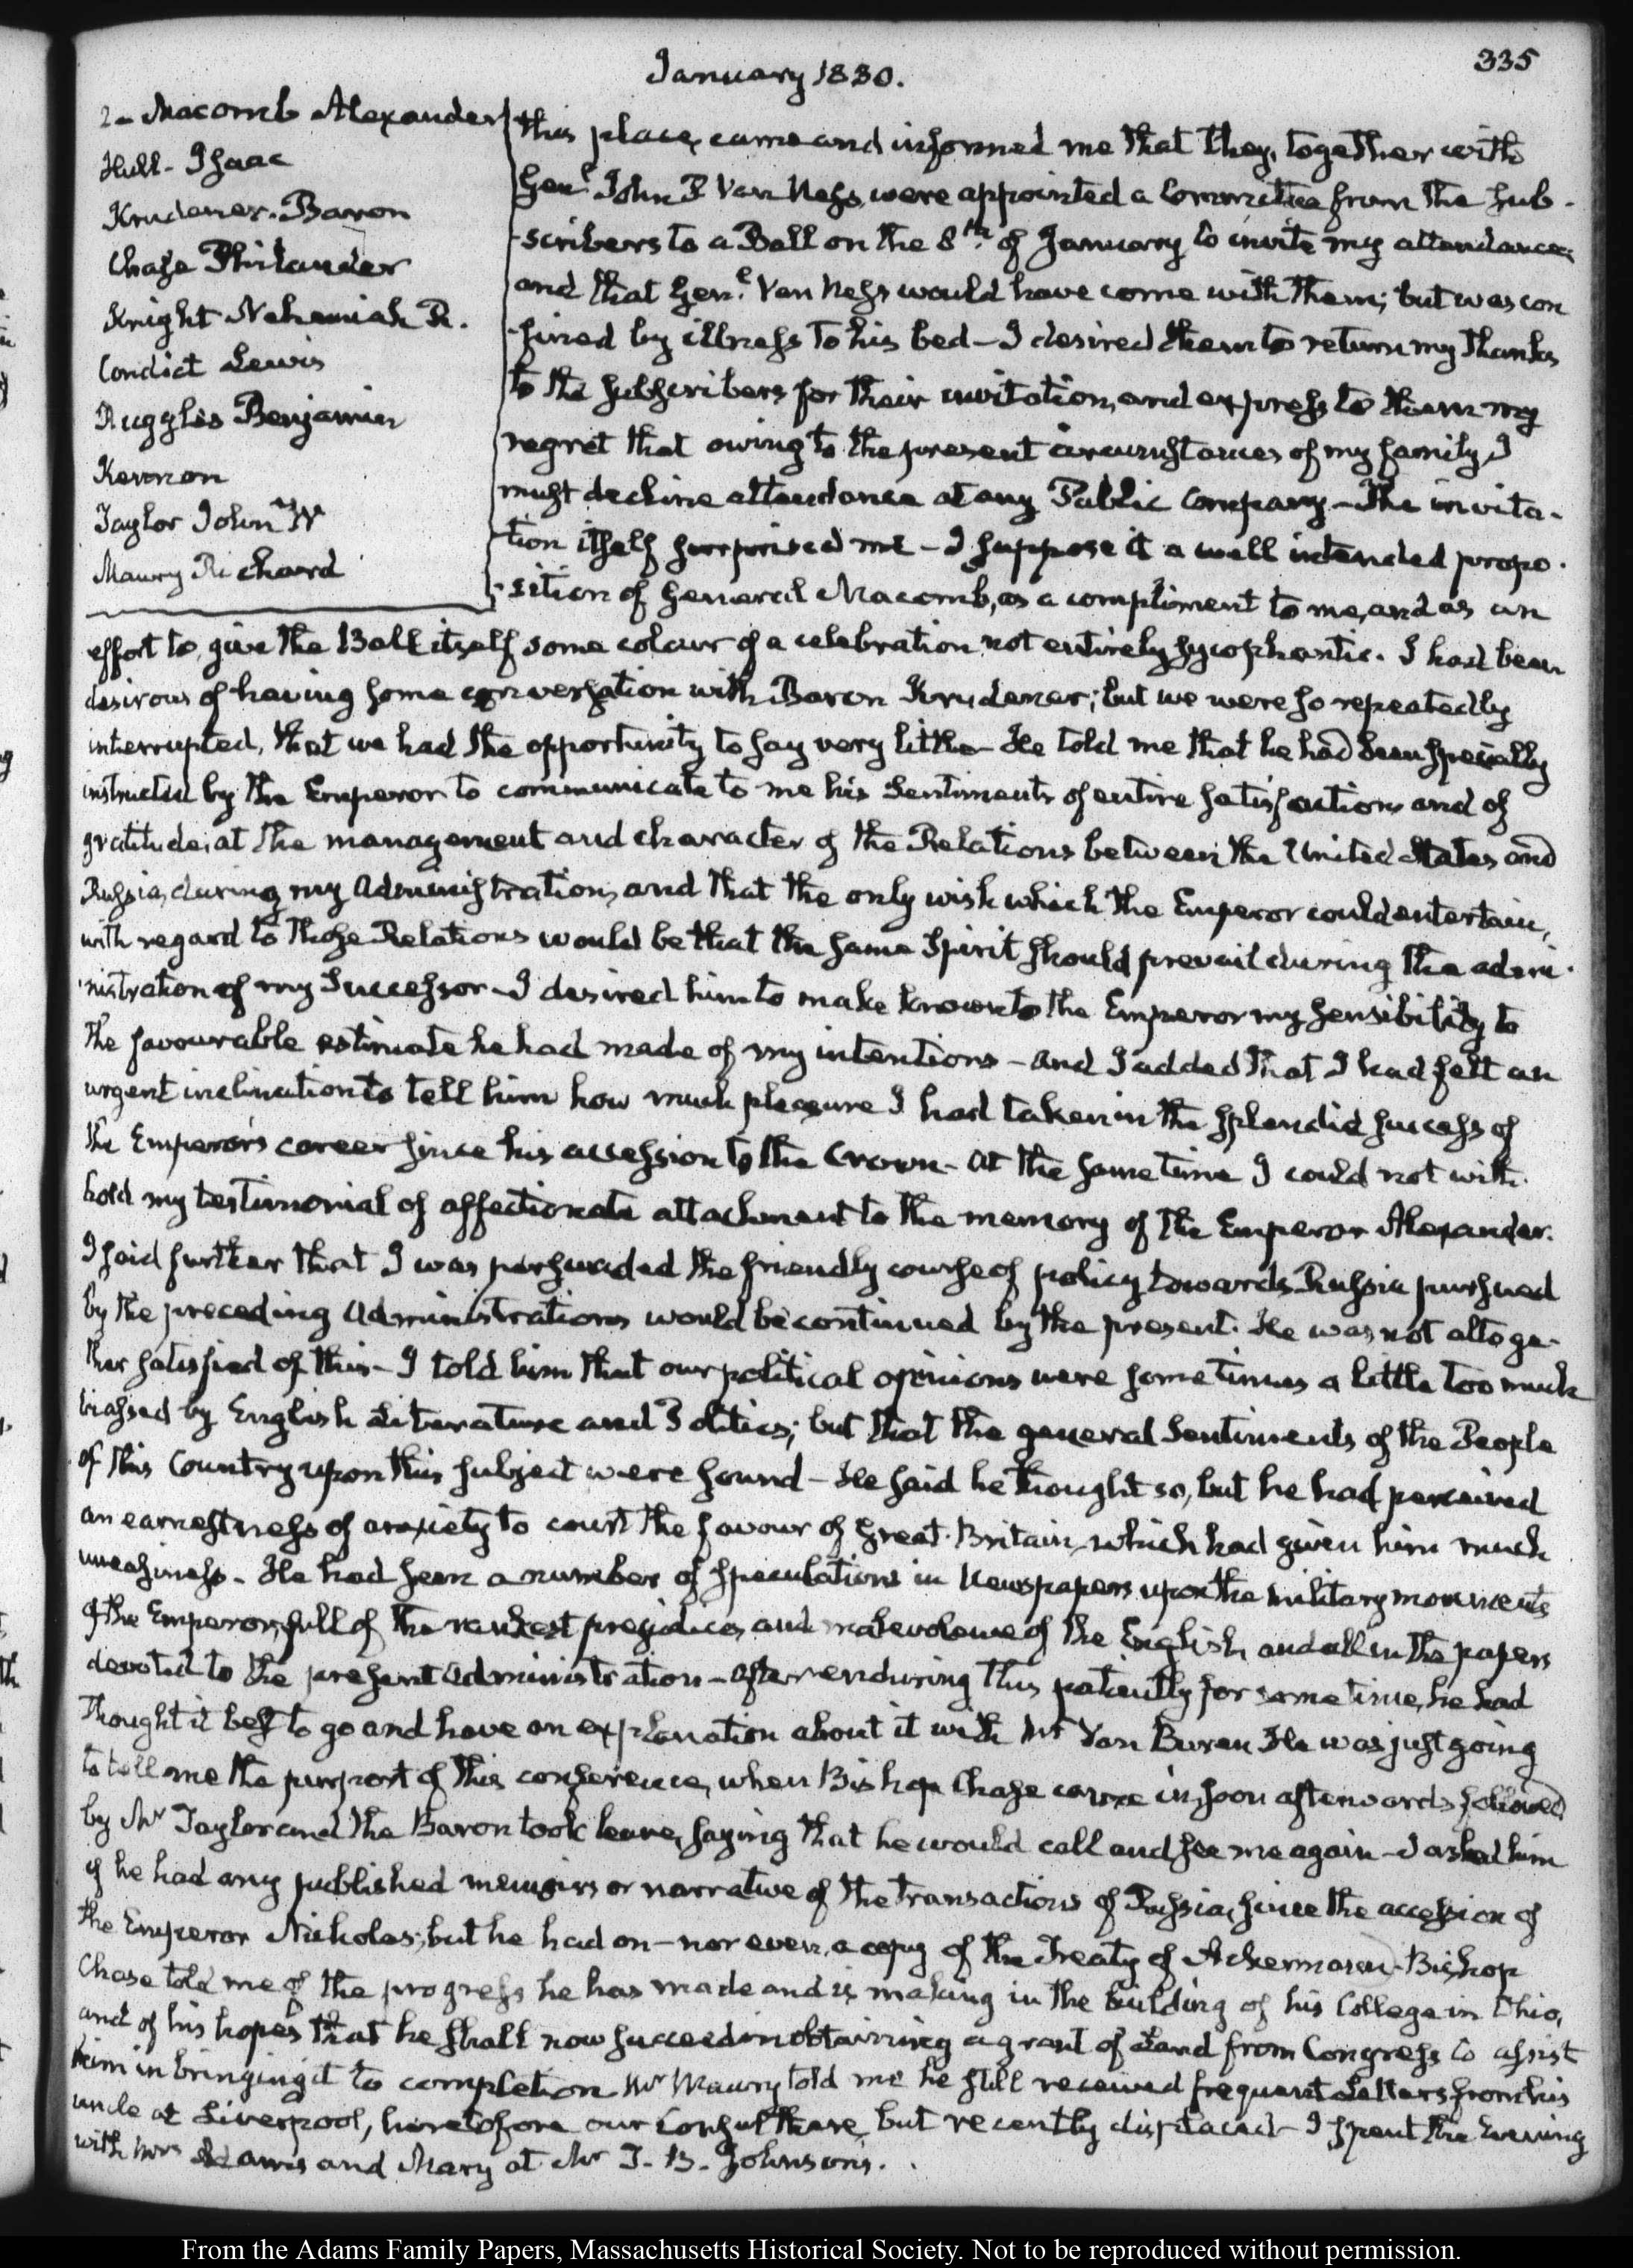 January 1830.
335
2- Macomb Alexander
Hull- Isaac
Krudener. Baron
Chase Philander
Knight Nehemiah R.
Condict Lewis
Ruggles Benjamin
Kernon
Taylor John W
Maury Richard
this place, came and informed me that they, together with
Genl. John P Van Ness, were appointed a Committee from the Sub-
-scribers to a Ball on the 8th. of January, to invite my attendance
and that Genl. Van Ness would have come with them; but was con
-fined by illness to his bed—I desired them to return my thanks
to the subscribers for their invitation, and express to them my
regret that owing to the present circumstances of my family, I
must decline attendance at any Public Company—The invita-
-tion itself surprised me—I suppose it a well intended propo-
-sition of General Macomb, as a compliment to me, and as an
effort to give the Ball itself some colour of a celebration not entirely sycophantic. I had been
desirous of having some conversation with Baron Krudener; but we were so repeatedly
interrupted, that we had the opportunity to say very little—He told me that he had been specially
instructed by the Emperor to communicate to me his Sentiments of entire satisfaction and of
gratitude, at the management and character of the Relations between the United States and
Russia, during my Administration, and that the only wish which the Emperor could entertain,
with regard to those Relations would be that the same Spirit should prevail during the admi-
-nistration of my Successor—I desired him to make known to the Emperor my sensibility to
the favourable estimate he had made of my intentions—and I added that I had felt an
urgent inclination to tell him how much pleasure I had taken in the splendid success of
the Emperor's career since his accession to the Crown—at the same time I could not with-
hold my testimonial of affectionate attachment to the memory of the Emperor Alexander.
I said further that I was persuaded the friendly course of policy towards Russia pursued
by the preceding Administrations would be continued by the present. He was not altoge-
ther satisfied of this—I told him that our political opinions were sometimes a little too much
biassed by English Literature and Politics; but that the general Sentiments of the People
of this Country upon this subject were sound—He said he thought so, but he had perceived
an earnestness of anxiety to court the favour of Great-Britain, which had given him much
uneasiness. He had seen a number of speculations in Newspapers upon the military movements
of the Emperor, full of the rankest prejudices and malevolence of the English and all in the papers
devoted to the present Administration—After enduring this patiently for some time, he had
thought it best to go and have an explanation about it with Mr Van Buren He was just going
to tell me the purport of this conference, when Bishop Chase came in, soon afterwards followed
by Mr Taylor and the Baron took leave, saying that he would call and see me again—I asked him
if he had any published memoirs or narrative of the transactions of Russia, since the accession of
the Emperor Nicholas; but he had on—nor even a copy of the Treaty of Ackermann. Bishop
Chase told me of the progress he has made and is making in the building of his College in Ohio,
and of his hopes that he shall now succeed in obtaining a grant of Land from Congress to assist
him in bringing it to completion Mr Maury told me he still received frequent Letters from his
uncle at Liverpool, heretofore our Consul there, but recently displaced—I spent the Evening
with Mrs Adams and Mary at Mr J. B. Johnson's.
From the Adams Family Papers, Massachusetts Historical Society. Not to be reproduced without permission.